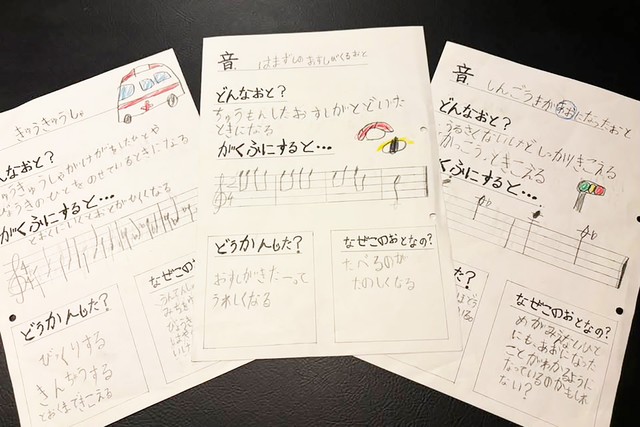 きゅうきゅうしゃ
んなおと?
ゅうきゅうしゃがかけがをしたひとや
ょうきのひとをのせているときになる
がくふにすると…
どうかんした?
びっくりする
きんちょうする
とおくまできこえる
なぜこのおとなの?
音
はまずしの おすしがくるおと
どんなおと?
ちゅうもんしたおすしがとどいた
ときになる
がくふにすると…
どうかんした?
おすしがきたーって
うれしくなる
なぜこのおとなの?
たべるのが
たのしくなる
音
しんごうきがあおになったおと
どんなおと?
うるさくないけどしっかりきこえる
かっこうときこえる
くふにすると…
した?
なぜこのおとなの?
めがみえないひと
にも、あおになった
ことがわかるように
なっているのかもしれ
ない?